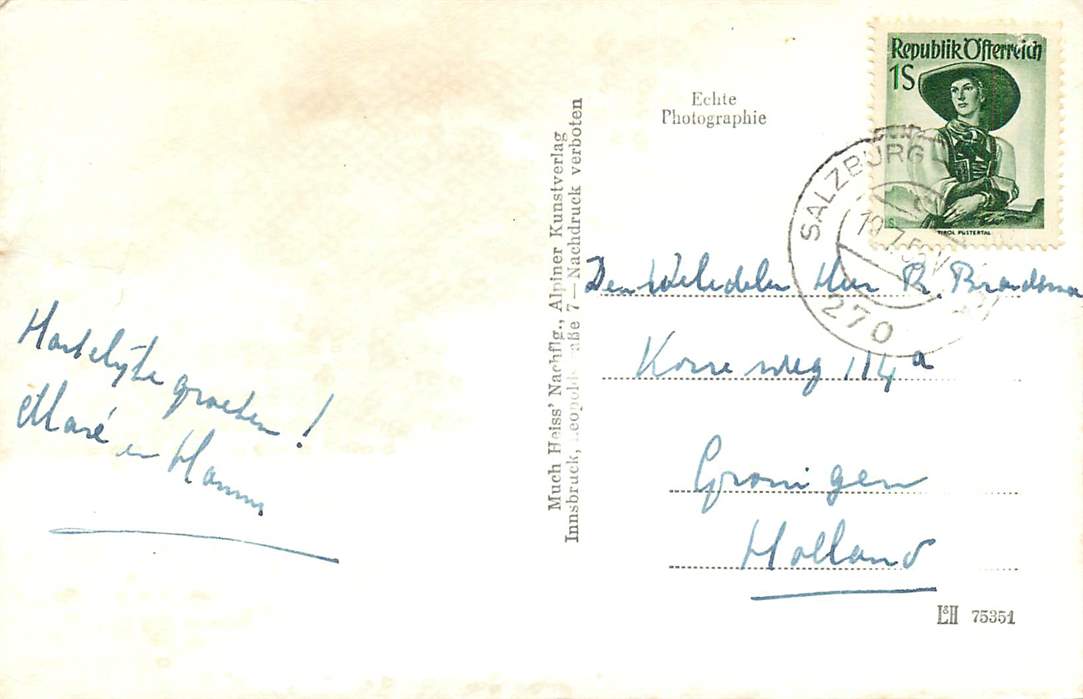 Republik Österreich
1S
TIROL PUSTERTAL
SALZBURG
19.7.
270
Echte
Photographie
Much Heiss' Nachflg., Alpiner Kunstverlag
Innsbruck, Leopoldstraße 7 — Nachdruck verboten
Hartelijke groeten!
Maré en Hanny
Den Weledelen Heer Ph. Brandsma
Korreweg 114a
Groningen
Holland
L&H 75351